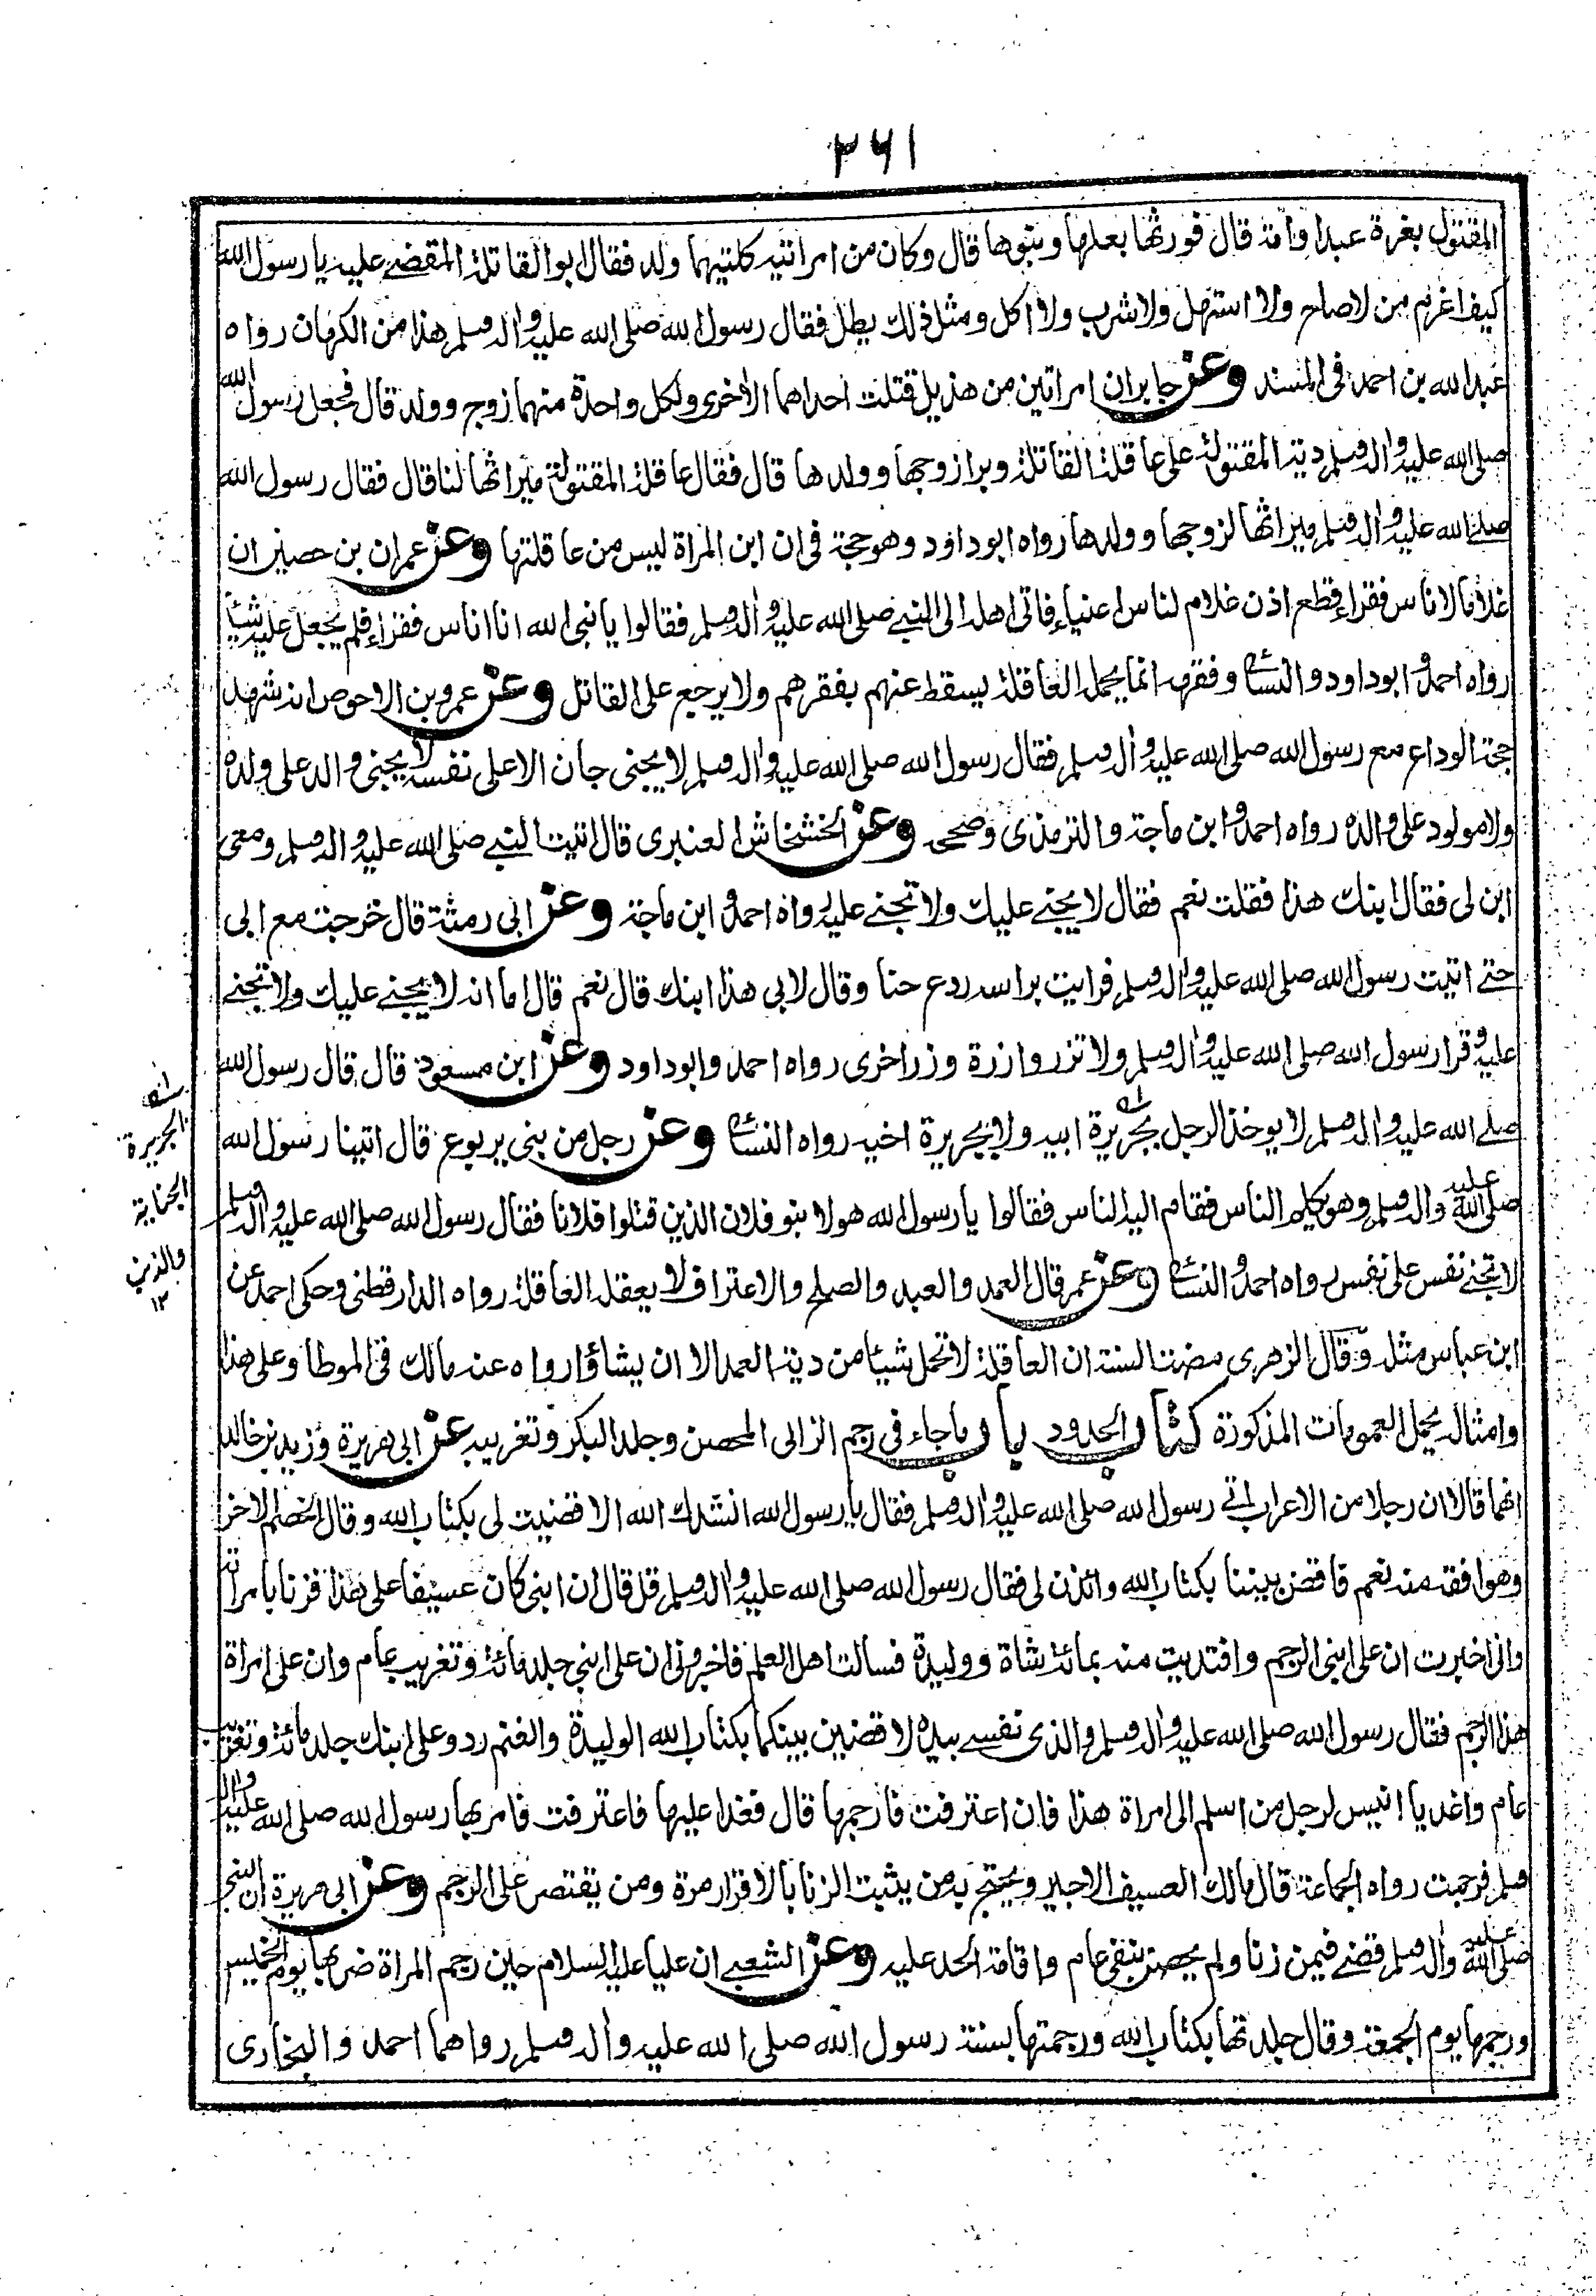 ٣٦١
المقتول بغرة عبد او امة قال فورثها بعلها وبنوها قال وكان من امراتيه كلتيهما ولد فقال ابو القاتلة المقضے عليه يا رسول الله
كيف اغرم من لا صاح ولا استهل ولا شرب ولا اكل ومثل ذلك يطل فقال رسول الله صلى الله عليه واله وسلم هذا من الكهان رواه
عبد الله بن احمد فى المسند وعن جابر ان امراتين من هذيل قتلت احداهما الاخرى ولكل واحدة منهما زوج وولد قال فجعل رسول الله
صلى الله عليه واله وسلم دية المقتولة على عاقلة القاتلة وبرا زوجها وولدها قال فقال عاقلة المقتولة ميراثها لنا قال فقال رسول الله
صلے الله عليه واله وسلم ميراثها لزوجها وولدها رواه ابو داود وهو حجة فى ان ابن المراة ليس من عاقلتها وعن عمران بن حصين ان
غلاما لاناس فقراء قطع اذن غلام لناس اغنياء فاتى اهله الى النبے صلى الله عليه واله وسلم فقالوا يا نبى الله انا اناس فقراء فلم يجعل عليه شيئا
رواه احمد وابو داود والنسائى وفقهه انما يحمل العاقلة يسقط عنهم بفقرهم ولا يرجع على القاتل وعن عمرو بن الاحوص انه شهد
حجة الوداع مع رسول الله صلى الله عليه واله وسلم فقال رسول الله صلى الله عليه واله وسلم لا يجنى جان الا على نفسه لا يجنى والد على ولده
ولا مولود على والده رواه احمد وابن ماجة والترمذى وصححه وعن الخشخاش العنبرى قال اتيت النبے صلى الله عليه واله وسلم ومعى
ابن لى فقال ابنك هذا فقلت نعم فقال لا يجنے عليك ولا تجنے عليه رواه احمد وابن ماجة وعن ابى رمثة قال خرجت مع ابى
حتے اتيت رسول الله صلى الله عليه واله وسلم فرايت براسه ردع حنا وقال لابى هذا ابنك قال نعم قال اما انه لا يجنے عليك ولا تجنے
عليه وقرا رسول الله صلى الله عليه واله وسلم ولا تزر وازرة وزر اخرى رواه احمد وابو داود وعن ابن مسعود قال قال رسول الله
صلے الله عليه واله وسلم لا يوخذ الرجل بجريرة ابيه ولا بجريرة اخيه رواه النسائى وعن رجل من بنى يربوع قال اتينا رسول الله
صلى الله عليه واله وسلم وهو يكلم الناس فقام اليه الناس فقالوا يا رسول الله هولا بنو فلان الذين قتلوا فلانا فقال رسول الله صلى الله عليه واله وسلم
لا تجنے نفس على نفس رواه احمد والنسائى وعن عمر قال العمد والعبد والصلح والاعتراف لا يعقله العاقلة رواه الدارقطنى وحكى احمد عن
ابن عباس مثله وقال الزهرى مضت السنة ان العاقلة لا تحمل شيئا من دية العمد الا ان يشاؤا رواه عنه مالك فى الموطا وعلى هذا
وامثاله يحمل العمومات المذكورة كتاب الحدود باب ما جاء فى رجم الزانى المحصن وجلد البكر وتغريبه عن ابى هريرة وزيد بن خالد
انهما قالا ان رجلا من الاعراب اتے رسول الله صلى الله عليه واله وسلم فقال يا رسول الله انشدك الله الا قضيت لى بكتاب الله وقال الخصم الاخر
وهو افقه منه نعم فاقض بيننا بكتاب الله وائذن لى فقال رسول الله صلى الله عليه واله وسلم قل قال ان ابنى كان عسيفا على هذا فزنا بامراته
وانى اخبرت ان على ابنى الرجم وافتديت منه بمائة شاة ووليدة فسالت اهل العلم فاخبرونى ان على ابنى جلد مائة وتغريب عام وان على امراة
هذا الرجم فقال رسول الله صلى الله عليه واله وسلم والذى نفسے بيده لاقضين بينكما بكتاب الله الوليدة والغنم رد وعلى ابنك جلد مائة وتغريب
عام واغد يا انيس لرجل من اسلم الى امراة هذا فان اعترفت فارجمها قال فغدا عليها فاعترفت فامر بها رسول الله صلى الله عليه واله
وسلم فرجمت رواه الجماعة قال مالك العسيف الاجير ويحتج به من يثبت الزنا بالاقرار مرة ومن يقتصر على الرجم وعن ابى هريرة ان النبے
صلى الله عليه واله وسلم قضے فيمن زنا ولم يحصن بنفى عام واقامة الحد عليه وعن الشعبے ان عليا عليه السلام حين رجم المراة ضربها يوم الخميس
ورجمها يوم الجمعة وقال جلدتها بكتاب الله ورجمتها بسنة رسول الله صلى الله عليه واله وسلم رواهما احمد والبخارى
الجريرة
الجناية
والذنب
١٢